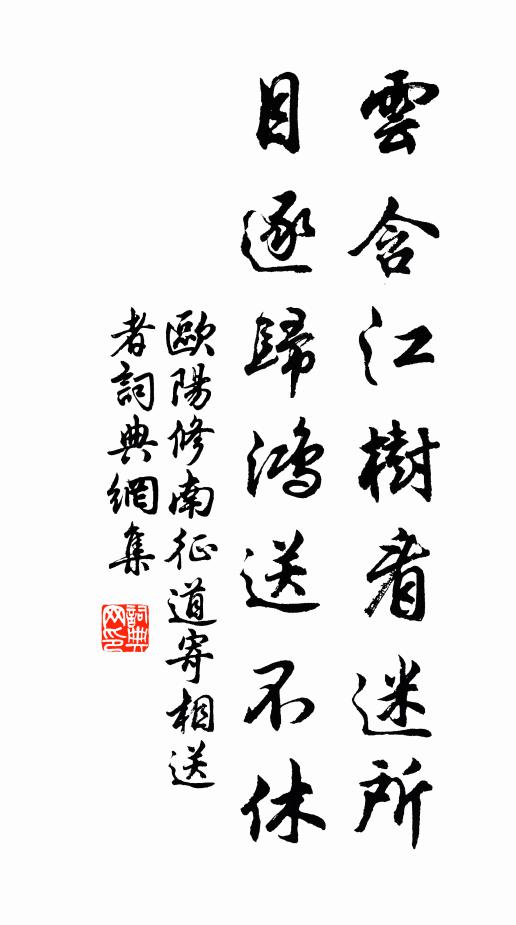 雲含江樹看迷所
目逐歸鴻送不休
歐陽修南征道寄相送
者詞典網集
詞典
网印